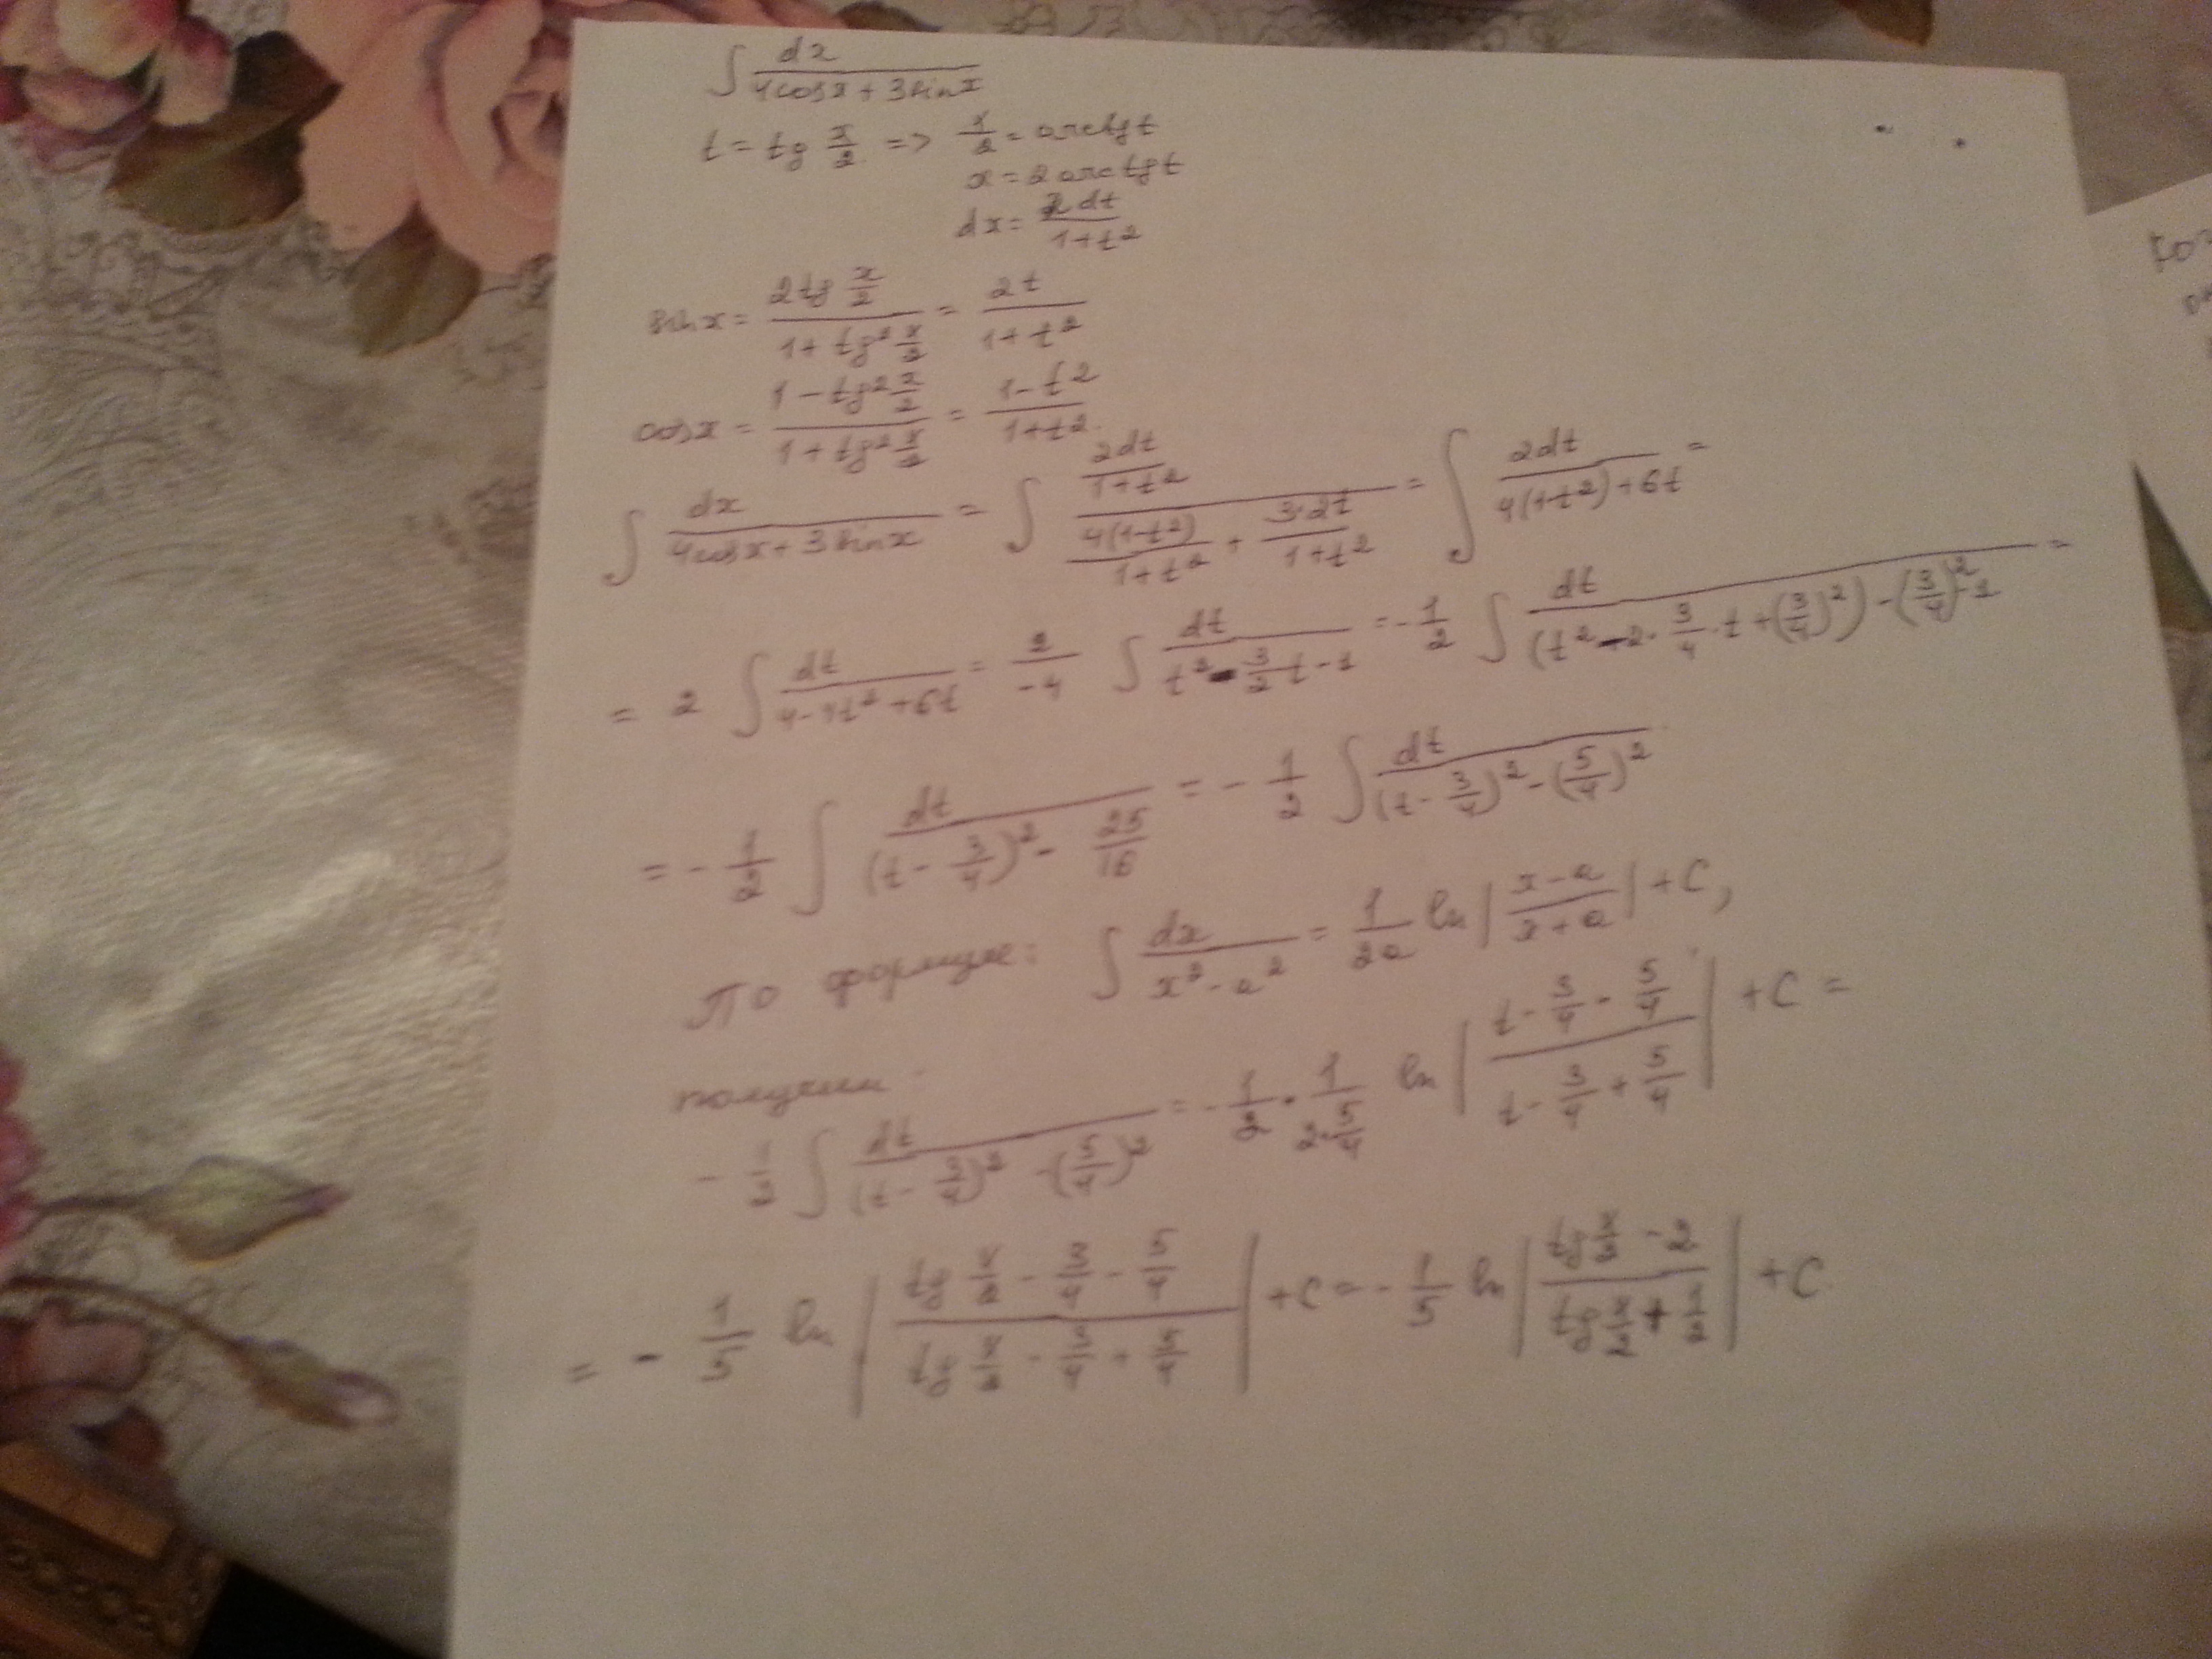 ∫ dx/(4cosx+3sinx)
t = tg x/2 => x/2 = arctgt
x = 2arctgt
dx = 2dt/(1+t²)
sinx = (2tg x/2)/(1+tg² x/2) = 2t/(1+t²)
cosx = (1-tg² x/2)/(1+tg² x/2) = (1-t²)/(1+t²)
∫ dx/(4cosx+3sinx) = ∫ (2dt/(1+t²))/(4(1-t²)/(1+t²) + 3·2t/(1+t²)) = ∫ 2dt/(4(1-t²)+6t) =
= 2 ∫ dt/(4-4t²+6t) = 2/(-4) ∫ dt/(t² - 3/2 t - 1) = -1/2 ∫ dt/((t² - 2·3/4·t + (3/4)²) - (3/4)² - 1) =
= -1/2 ∫ dt/((t - 3/4)² - 25/16) = -1/2 ∫ dt/((t - 3/4)² - (5/4)²)
По формуле: ∫ dx/(x²-a²) = 1/2a ln|(x-a)/(x+a)| + C,
получим:
-1/2 ∫ dt/((t - 3/4)² - (5/4)²) = -1/2 · 1/(2·5/4) ln|(t - 3/4 - 5/4)/(t - 3/4 + 5/4)| + C =
= -1/5 ln|(tg x/2 - 3/4 - 5/4)/(tg x/2 - 3/4 + 5/4)| + C = -1/5 ln|(tg x/2 - 2)/(tg x/2 + 1/2)| + C